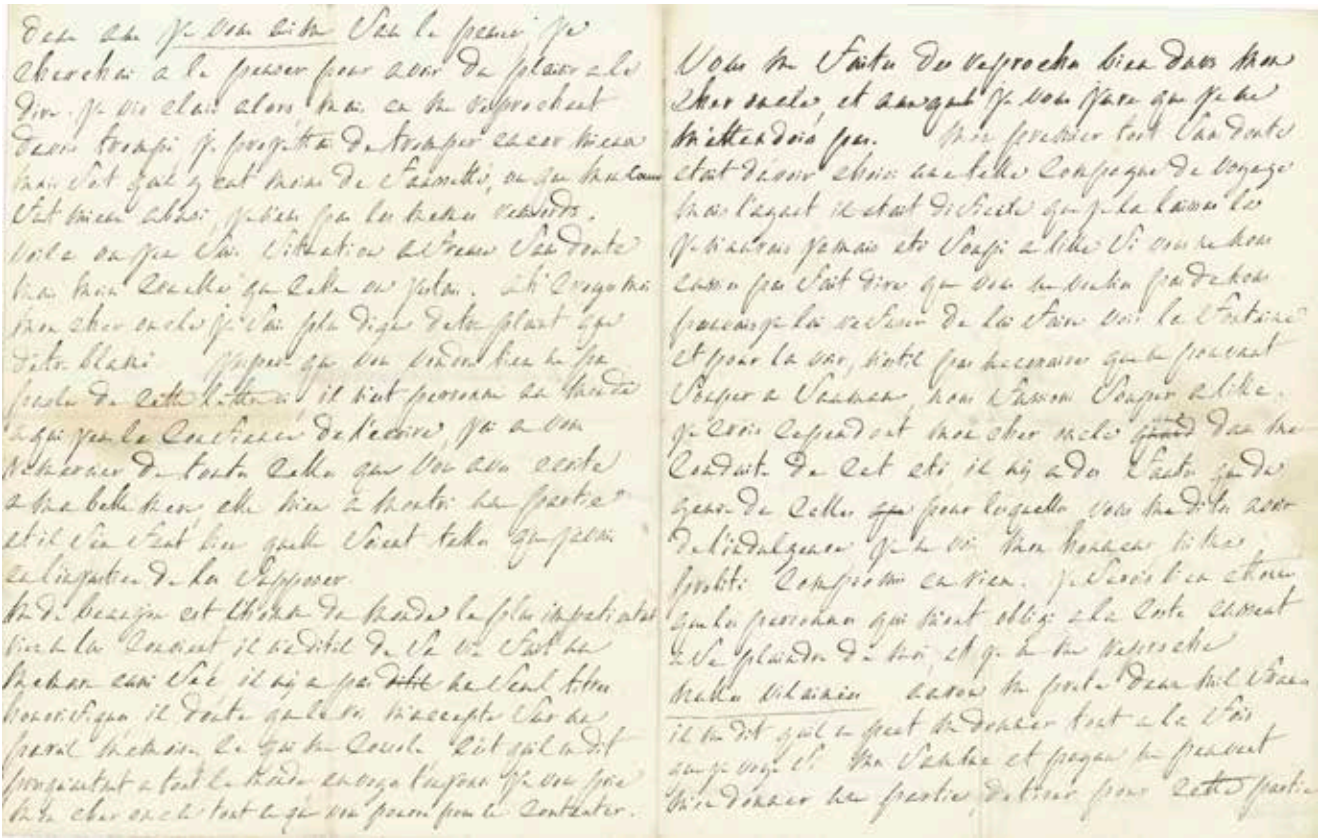 deux ans je vous aime sans le penser je
cherchai a le penser pour avoir du plaisir a le
dire. je vis clair alors, mais en me reprochant
davoir trompé je projettai de tromper encor mieux
mais soit quil y eut moins de fausseté, ou que mon coeur
fut mieux abusé, je n'eus pas les memes remords.
voila ou j'en suis situation affreuse sans doute
mais moins cruelle que celle ou jetois.
mon cher oncle je suis plus digne detre plaint que
detre blamé. j'espere que vous voudrez bien ne pas
parler de cette lettre, il n'est personne au monde
a qui j'eus la confiance de l'ecrire, j'ai a vous
remercier de toutes celles que vous avez ecrites
a ma belle mere, elle m'en a montré une partie
et il s'en faut bien quelles soient telles que j'avois
l'injustice de les supposer.
est l'homme du monde le plus impatientant
il na de sa vie fait un
memoire il n'y a pas un seul titre
honorifique il doute que le roi m'accepte sur un
pareil memoire, ce qui me console c'est quil en dit
je vous prie
mon cher oncle tout ce que vous pourrez pour le contenter.
Vous me faites des reproches bien durs mon
cher oncle, et auxquels je vous jure que je ne
m'attendois pas. Mon premier tort sans doute
etoit davoir choisi une telle compagne de voyage
mais l'ayant il etoit dificile que je la laissai la
je n'aurois jamais eté soupé a lille si vous ne nous
eussiez pas fait dire que vous ne vouliez pas de nous
pouvois je lui refuser de lui faire voir la fontaine
et pour la voir, n'est il pas necessaire que ne pouvant
souper a Sauman, nous fussions souper a lille.
je crois cependant mon cher oncle que dans ma
conduite de cet eté, il n'y a des fautes que du
genre de celles pour lesquelles vous me dites avoir
de l'indulgence je ne vois mon honneur ni ma
probité compromis en rien. je serois bien
que les personnes qui m'ont obligé a la Coste eussent
a se plaindre de moi, et je ne me reproche
nulles vilainies me prete deux mil francs
il me dit quil ne peut me donner tout a la fois
que je voye si et ne peuvent
m'en donner une partie, pour cette partie